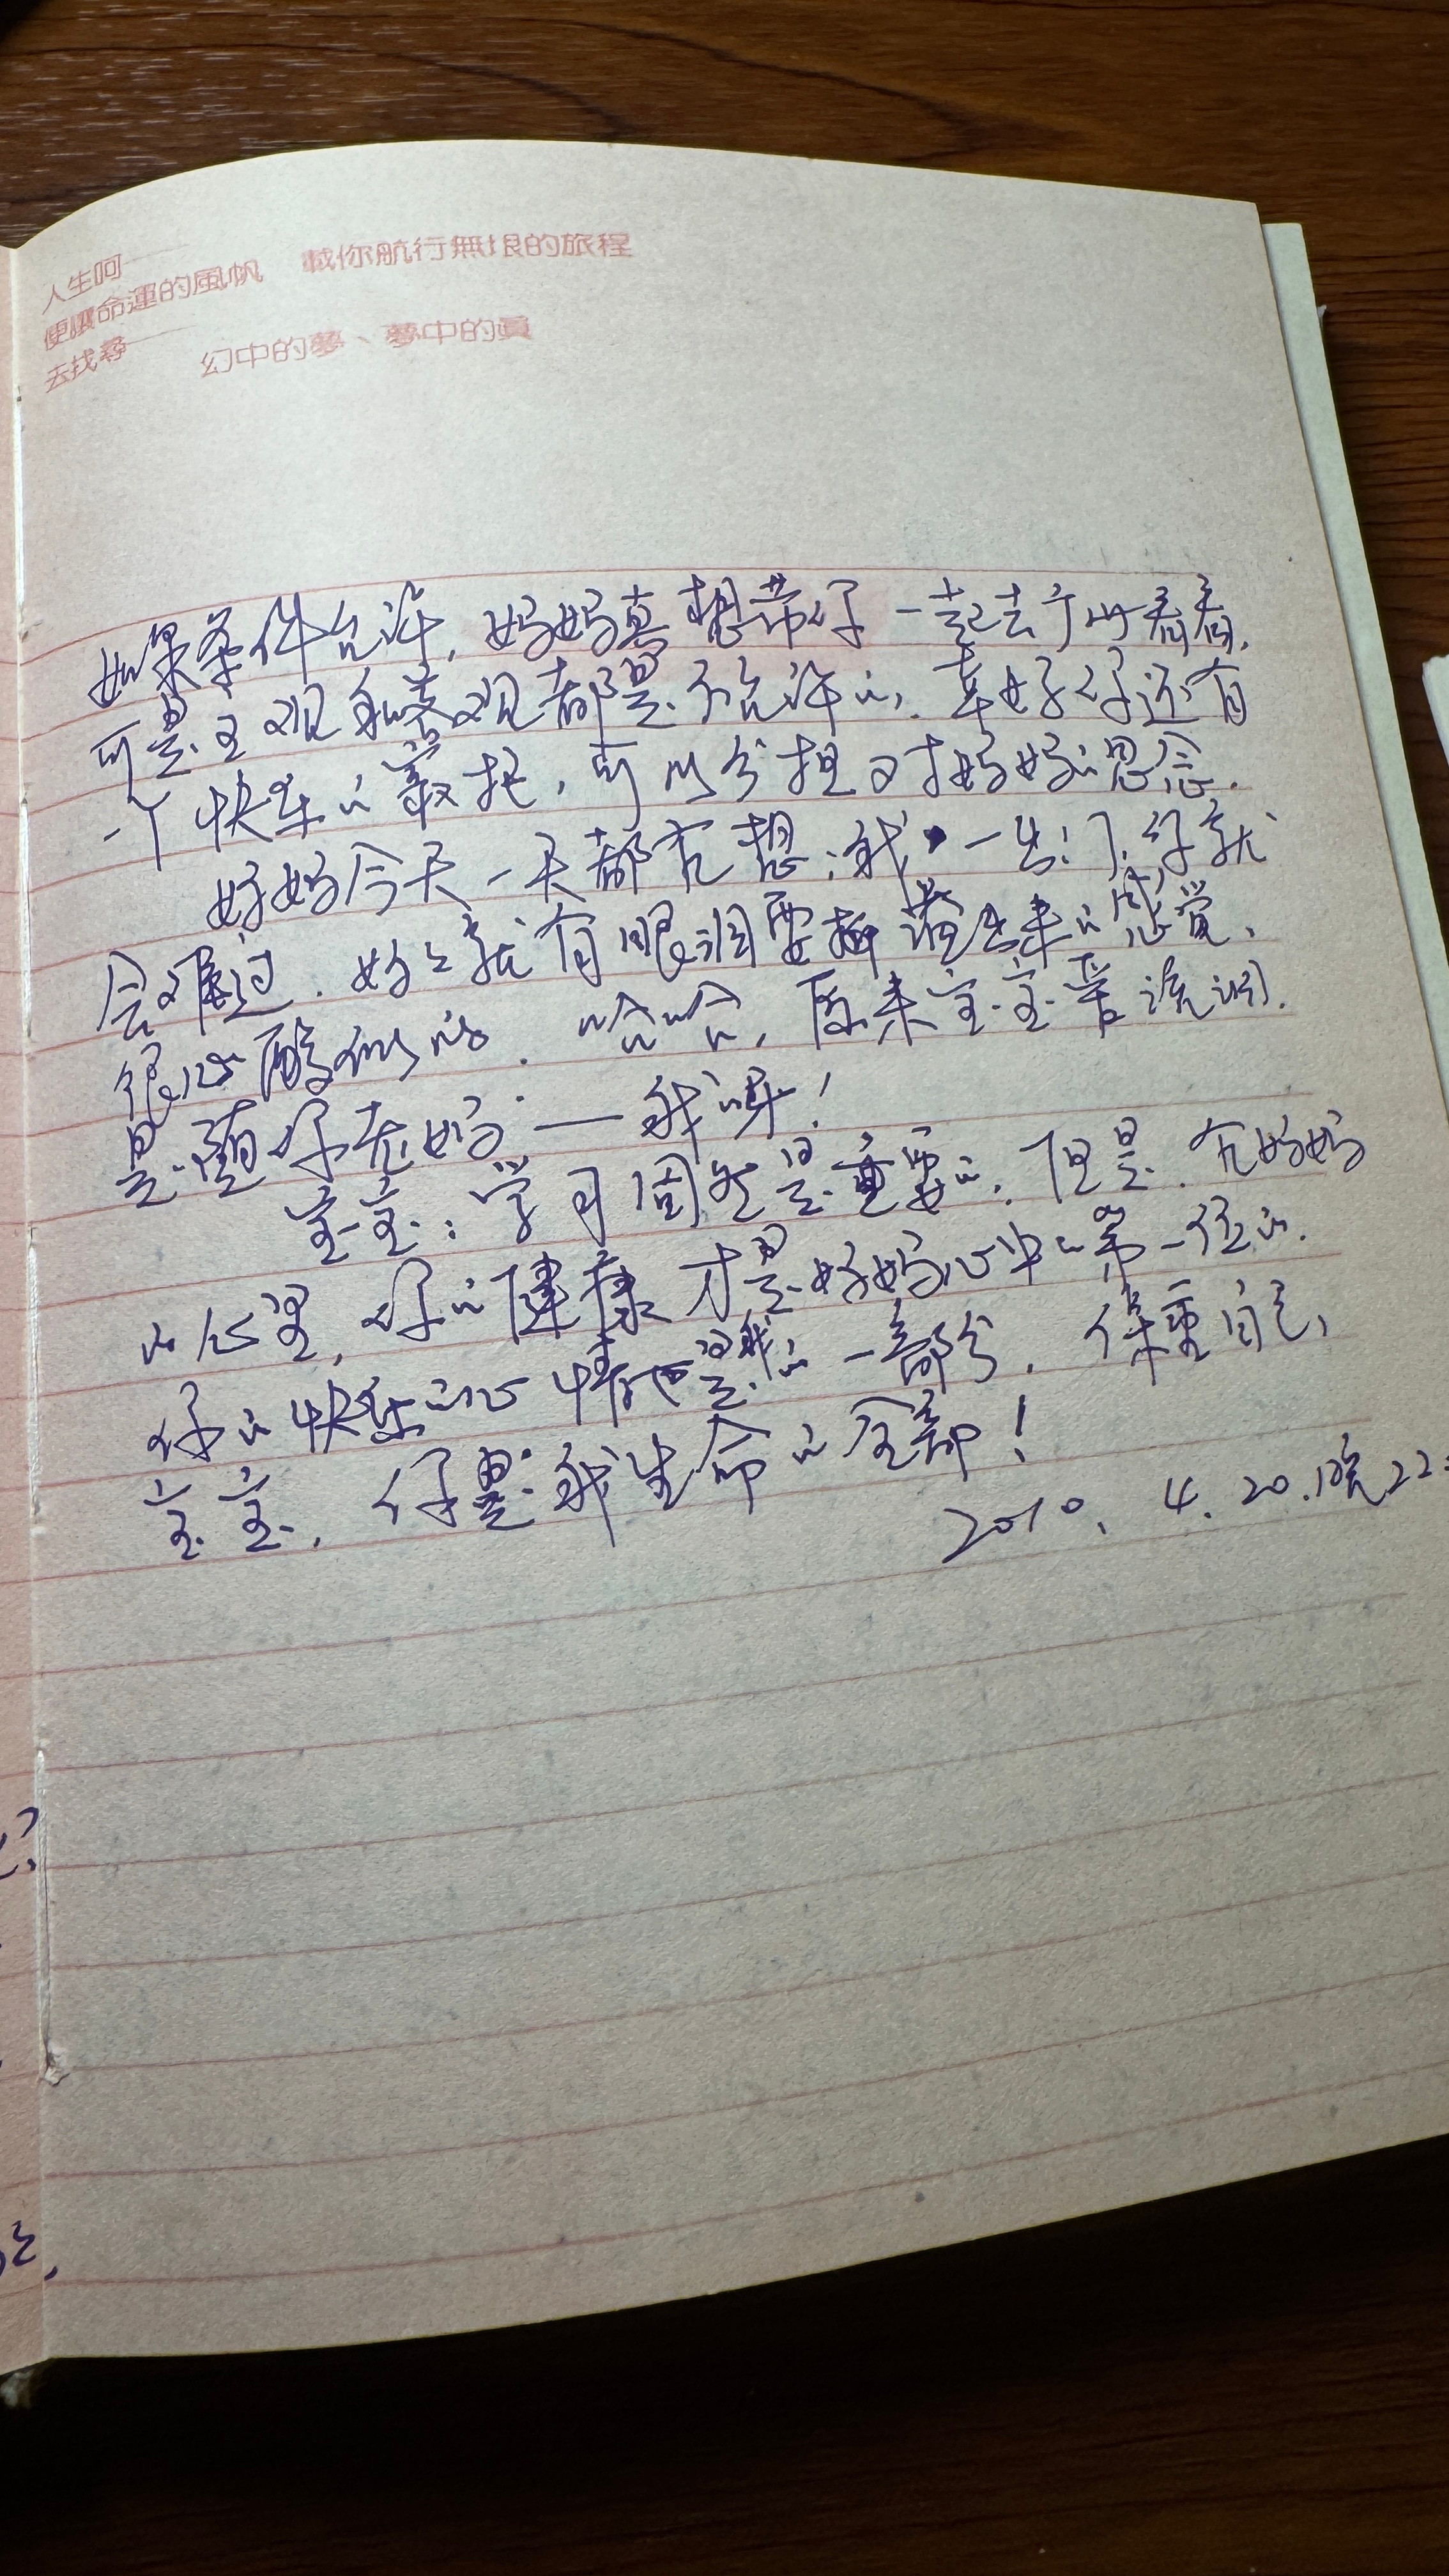 人生呵
便讓命運的風帆 載你航行無垠的旅程
去找尋 幻中的夢、夢中的眞
如果条件允许,妈妈真想带你一起去广州看看,
可是主观和客观都是不允许的,幸好你还有
一个快乐的寄托,可以分担对妈妈的思念.
妈妈今天一天都在想:我一出门,你就
会难过.妈妈就有眼泪要掉出来的感觉,
很心酸似的.哈哈,原来宝宝爱流泪,
是随你老妈——我呀!
宝宝:学习固然是重要的,但是,在妈妈
的心里,你的健康才是妈妈心中的第一位的.
你的快乐的心情也是我的一部分,保重自己,
宝宝,你是我生命的全部!
2010.4.20.晚22: